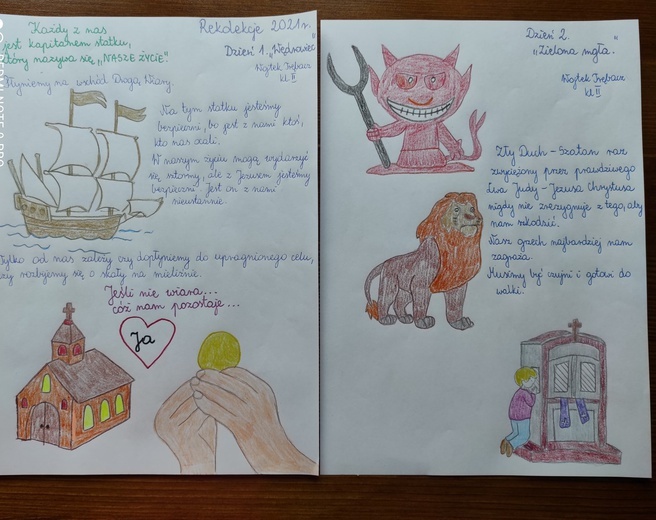 Każdy z nas
jest kapitanem statku,
który nazywa się „NASZE ŻYCIE".
Płyniemy na wschód Drogą Wiary.
Rekolekcje 2021r.
Dzień 1. „Wędrowiec"
Wojtek
kl II
Na tym statku jesteśmy
bezpieczni, bo jest z nami ktoś,
kto nas ocali.
W naszym życiu mogą wydarzyć
się sztormy, ale z Jezusem jesteśmy
bezpieczni. Jest on z nami
nieustannie.
Tylko od nas zależy czy dopłyniemy do upragnionego celu,
czy rozbijemy się o skały na mieliźnie.
Jeśli nie wiara...
cóż nam pozostaje...
Ja
Dzień 2.
„Zielona mgła."
Wojtek
kl II
Zły Duch - Szatan raz
zwyciężony przez prawdziwego
Lwa Judy - Jezusa Chrystusa
nigdy nie zrezygnuje z tego, aby
nam szkodzić.
Nasz grzech najbardziej nam
zagraża.
Musimy być czujni i gotowi do
walki.